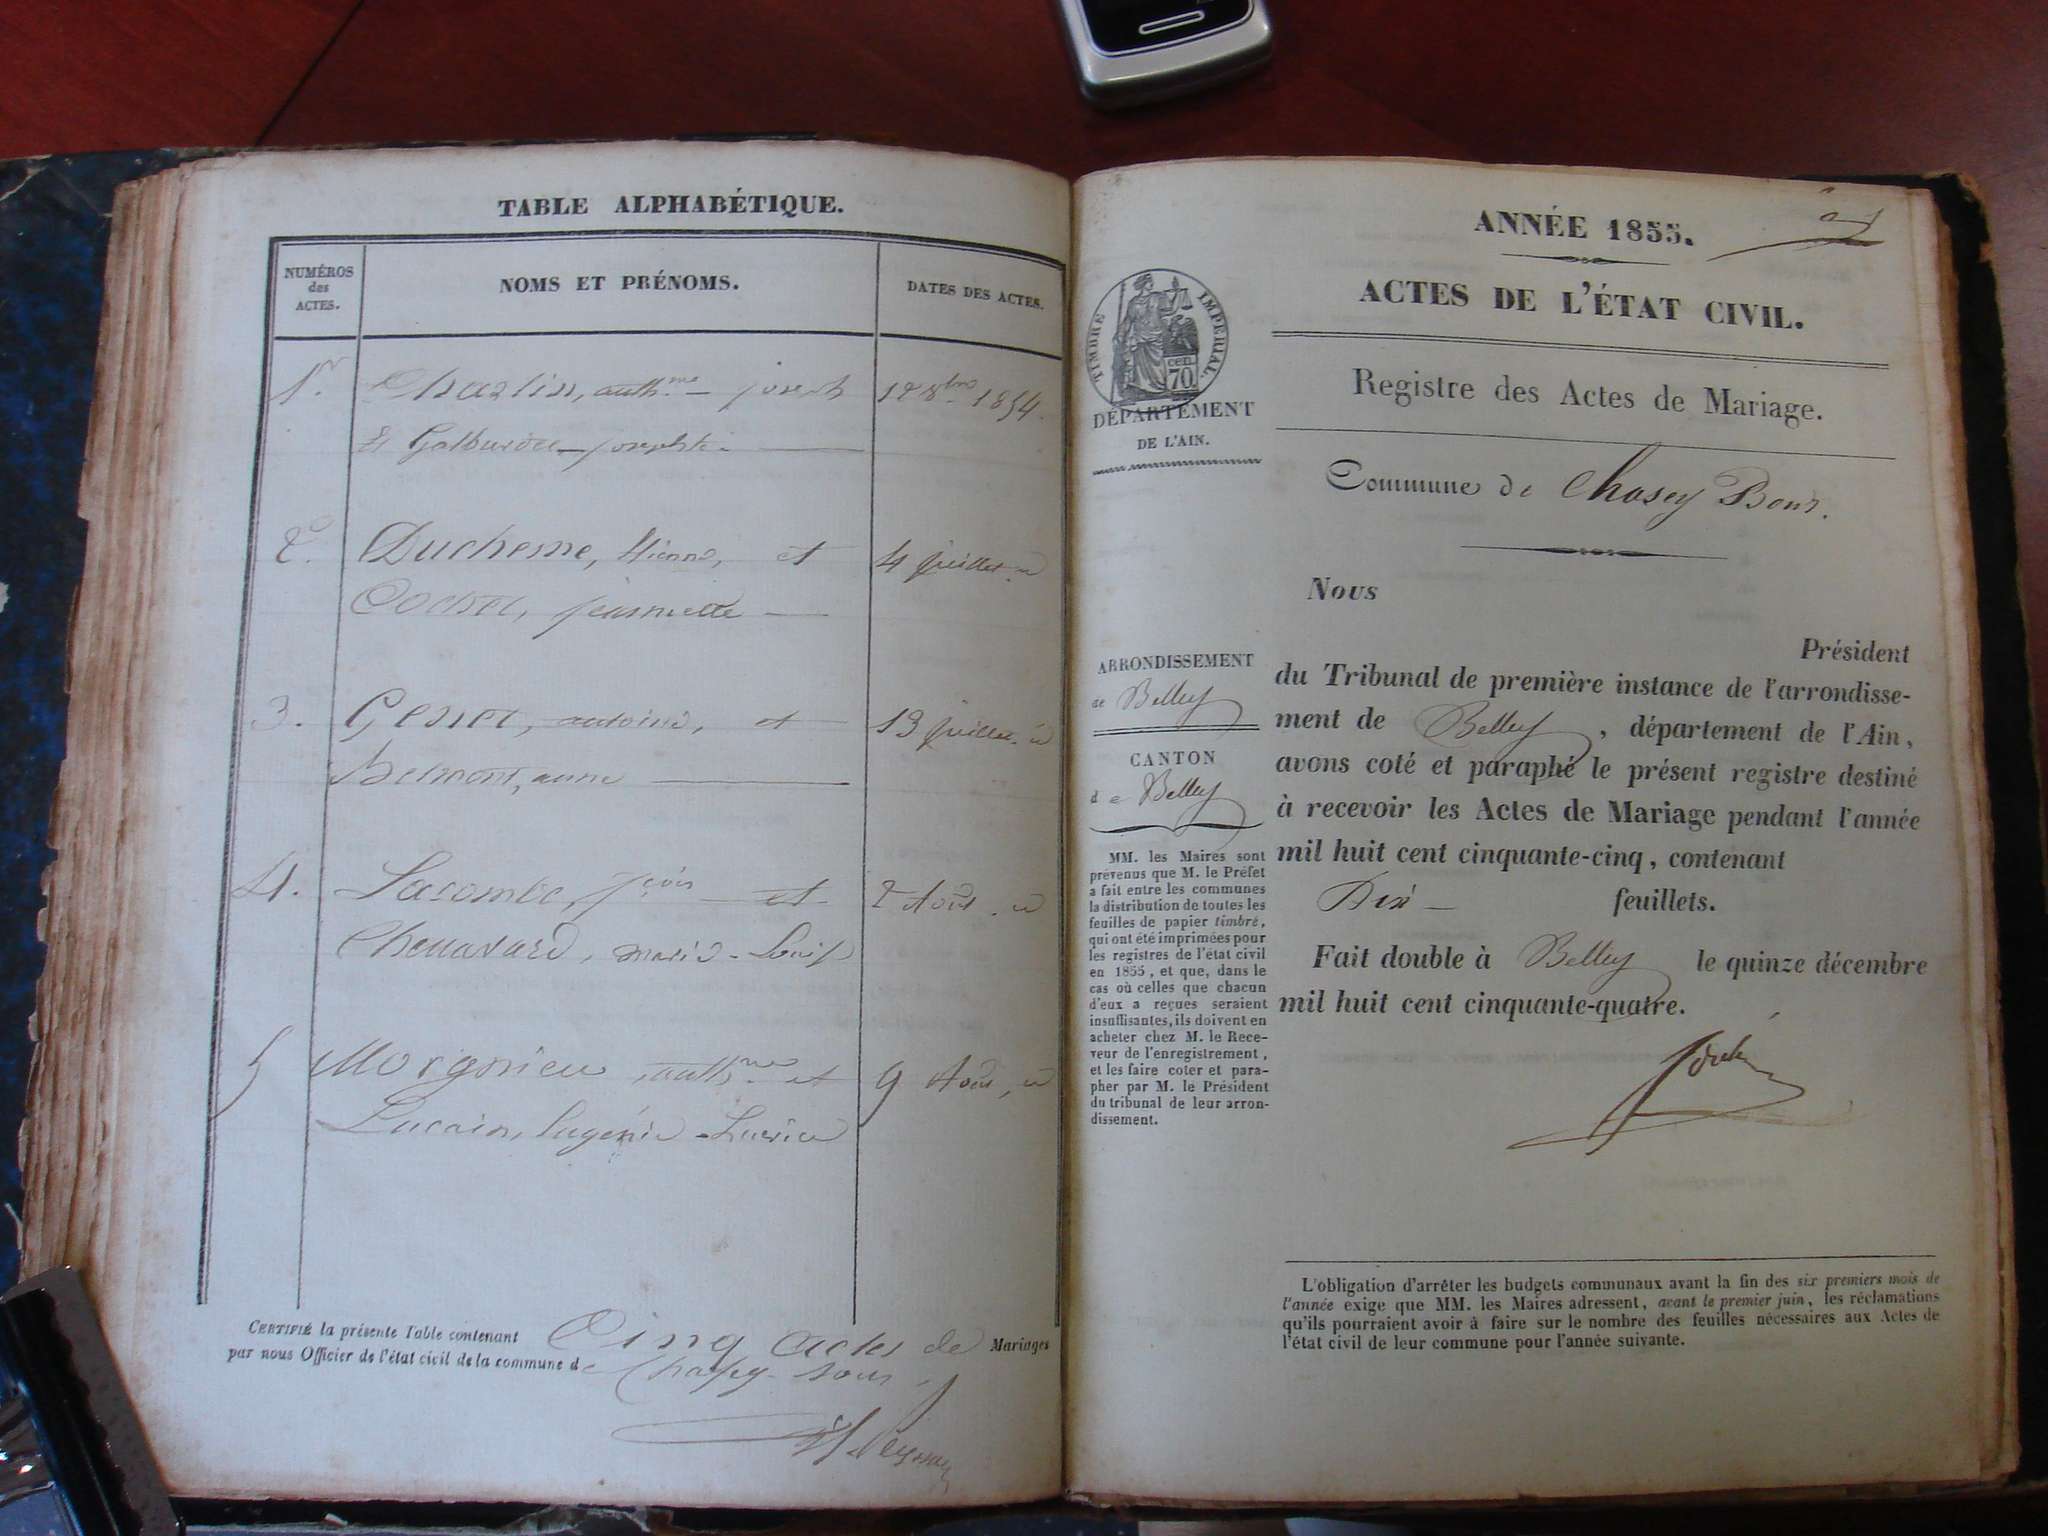 TABLE ALPHABÉTIQUE.
NUMÉROS
des
ACTES.
NOMS ET PRÉNOMS.
DATES DES ACTES.
1er Charlin, anth.me — joseph 12 8bre 1854.
et josephte
2. Duchesne, Etienne, et 4 juillet id
Cochet, jeannette
3. Genet, antoine, et 13 juillet id
Belmont, anne
4. Lacombe, fçois et 2 Août id
Chenavard, marie-Louise
5 Morgnieu, anth.me et 9 Août, id
Lucain, Eugénie
CERTIFIÉ la présente Table contenant Cinq actes de Mariages
par nous Officier de l'état civil de la commune de Chasey-Bons.
ANNÉE 1855.
ACTES DE L'ÉTAT CIVIL.
TIMBRE IMPERIAL.
cen.
70
DÉPARTEMENT
DE L'AIN.
Registre des Actes de Mariage.
Commune de Chasey Bons.
Nous
Président
du Tribunal de première instance de l'arrondisse-
ment de Belley, département de l'Ain,
avons coté et paraphé le présent registre destiné
à recevoir les Actes de Mariage pendant l'année
mil huit cent cinquante-cinq, contenant
Dix — feuillets.
Fait double à Belley le quinze décembre
mil huit cent cinquante-quatre.
ARRONDISSEMENT
de Belley
CANTON
de Belley
MM. les Maires sont
prévenus que M. le Préfet
a fait entre les communes
la distribution de toutes les
feuilles de papier timbré,
qui ont été imprimées pour
les registres de l'état civil
en 1855, et que, dans le
cas où celles que chacun
d'eux a reçues seraient
insuffisantes, ils doivent en
acheter chez M. le Rece-
veur de l'enregistrement,
et les faire coter et para-
pher par M. le Président
du tribunal de leur arron-
dissement.
L'obligation d'arrêter les budgets communaux avant la fin des six premiers mois de
l'année exige que MM. les Maires adressent, avant le premier juin, les réclamations
qu'ils pourraient avoir à faire sur le nombre des feuilles nécessaires aux Actes de
l'état civil de leur commune pour l'année suivante.